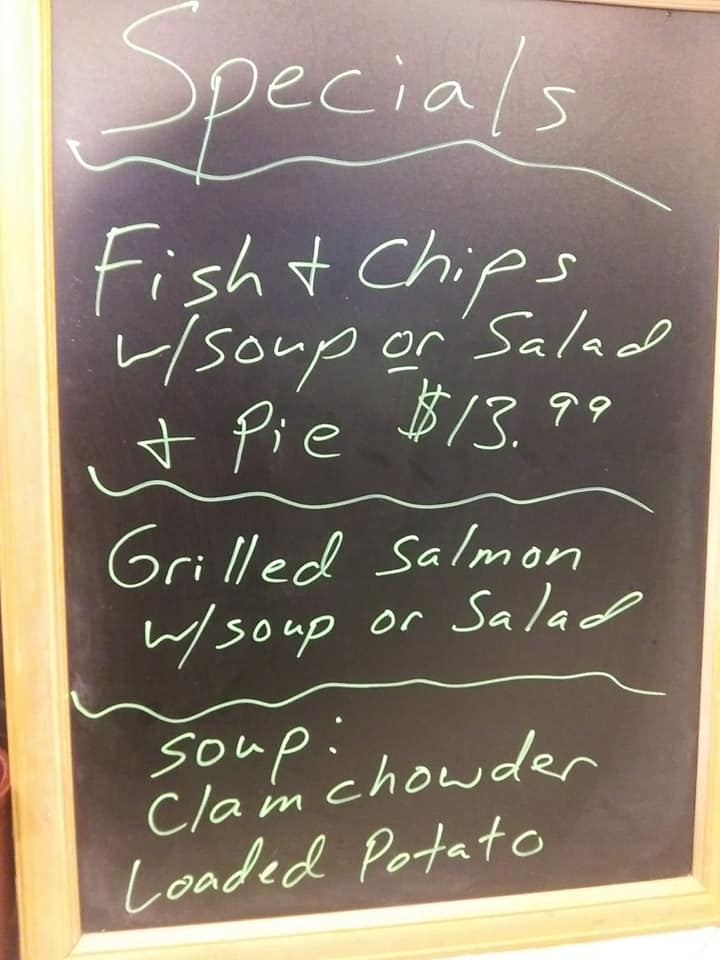 Specials
Fish + Chips
w/soup or Salad
+ Pie $13.99
Grilled Salmon
w/soup or Salad
soup:
Clam chowder
Loaded Potato